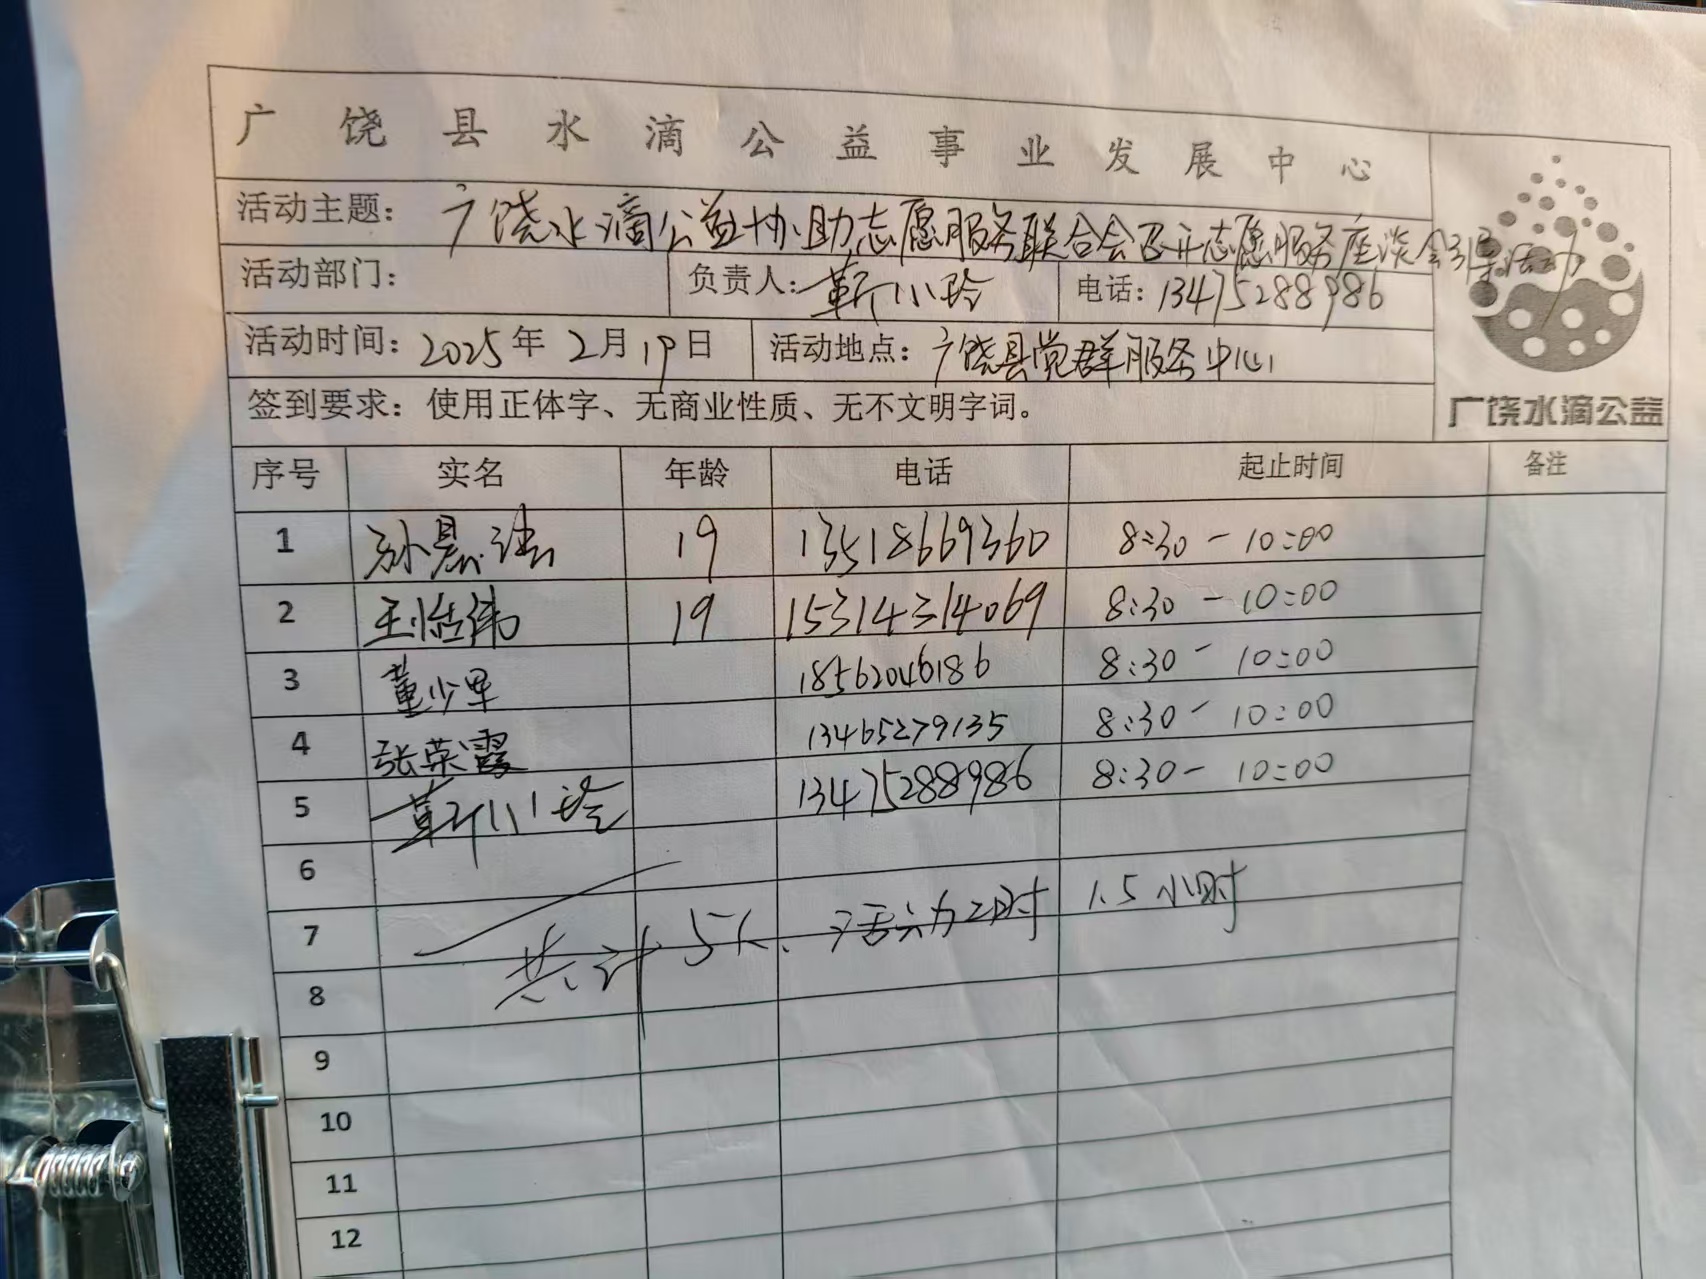 广饶县水滴公益事业发展中心
活动主题：广饶水滴公益协助志愿服务联合会召开志愿服务座谈会引导活动
活动部门： 负责人：靳小玲 电话：13475288986
活动时间：2025年2月19日 活动地点：广饶县党群服务中心
签到要求：使用正体字、无商业性质、无不文明字词。
广饶水滴公益
序号 实名 年龄 电话 起止时间 备注
1 孙 19 13518669360 8:30-10:00
2 王浩伟 19 15314314069 8:30-10:00
3 董少军 18562046186 8:30-10:00
4 张荣霞 13465279135 8:30-10:00
5 靳小玲 13475288986 8:30-10:00
6
7 共计5人、活动时 1.5小时
8
9
10
11
12